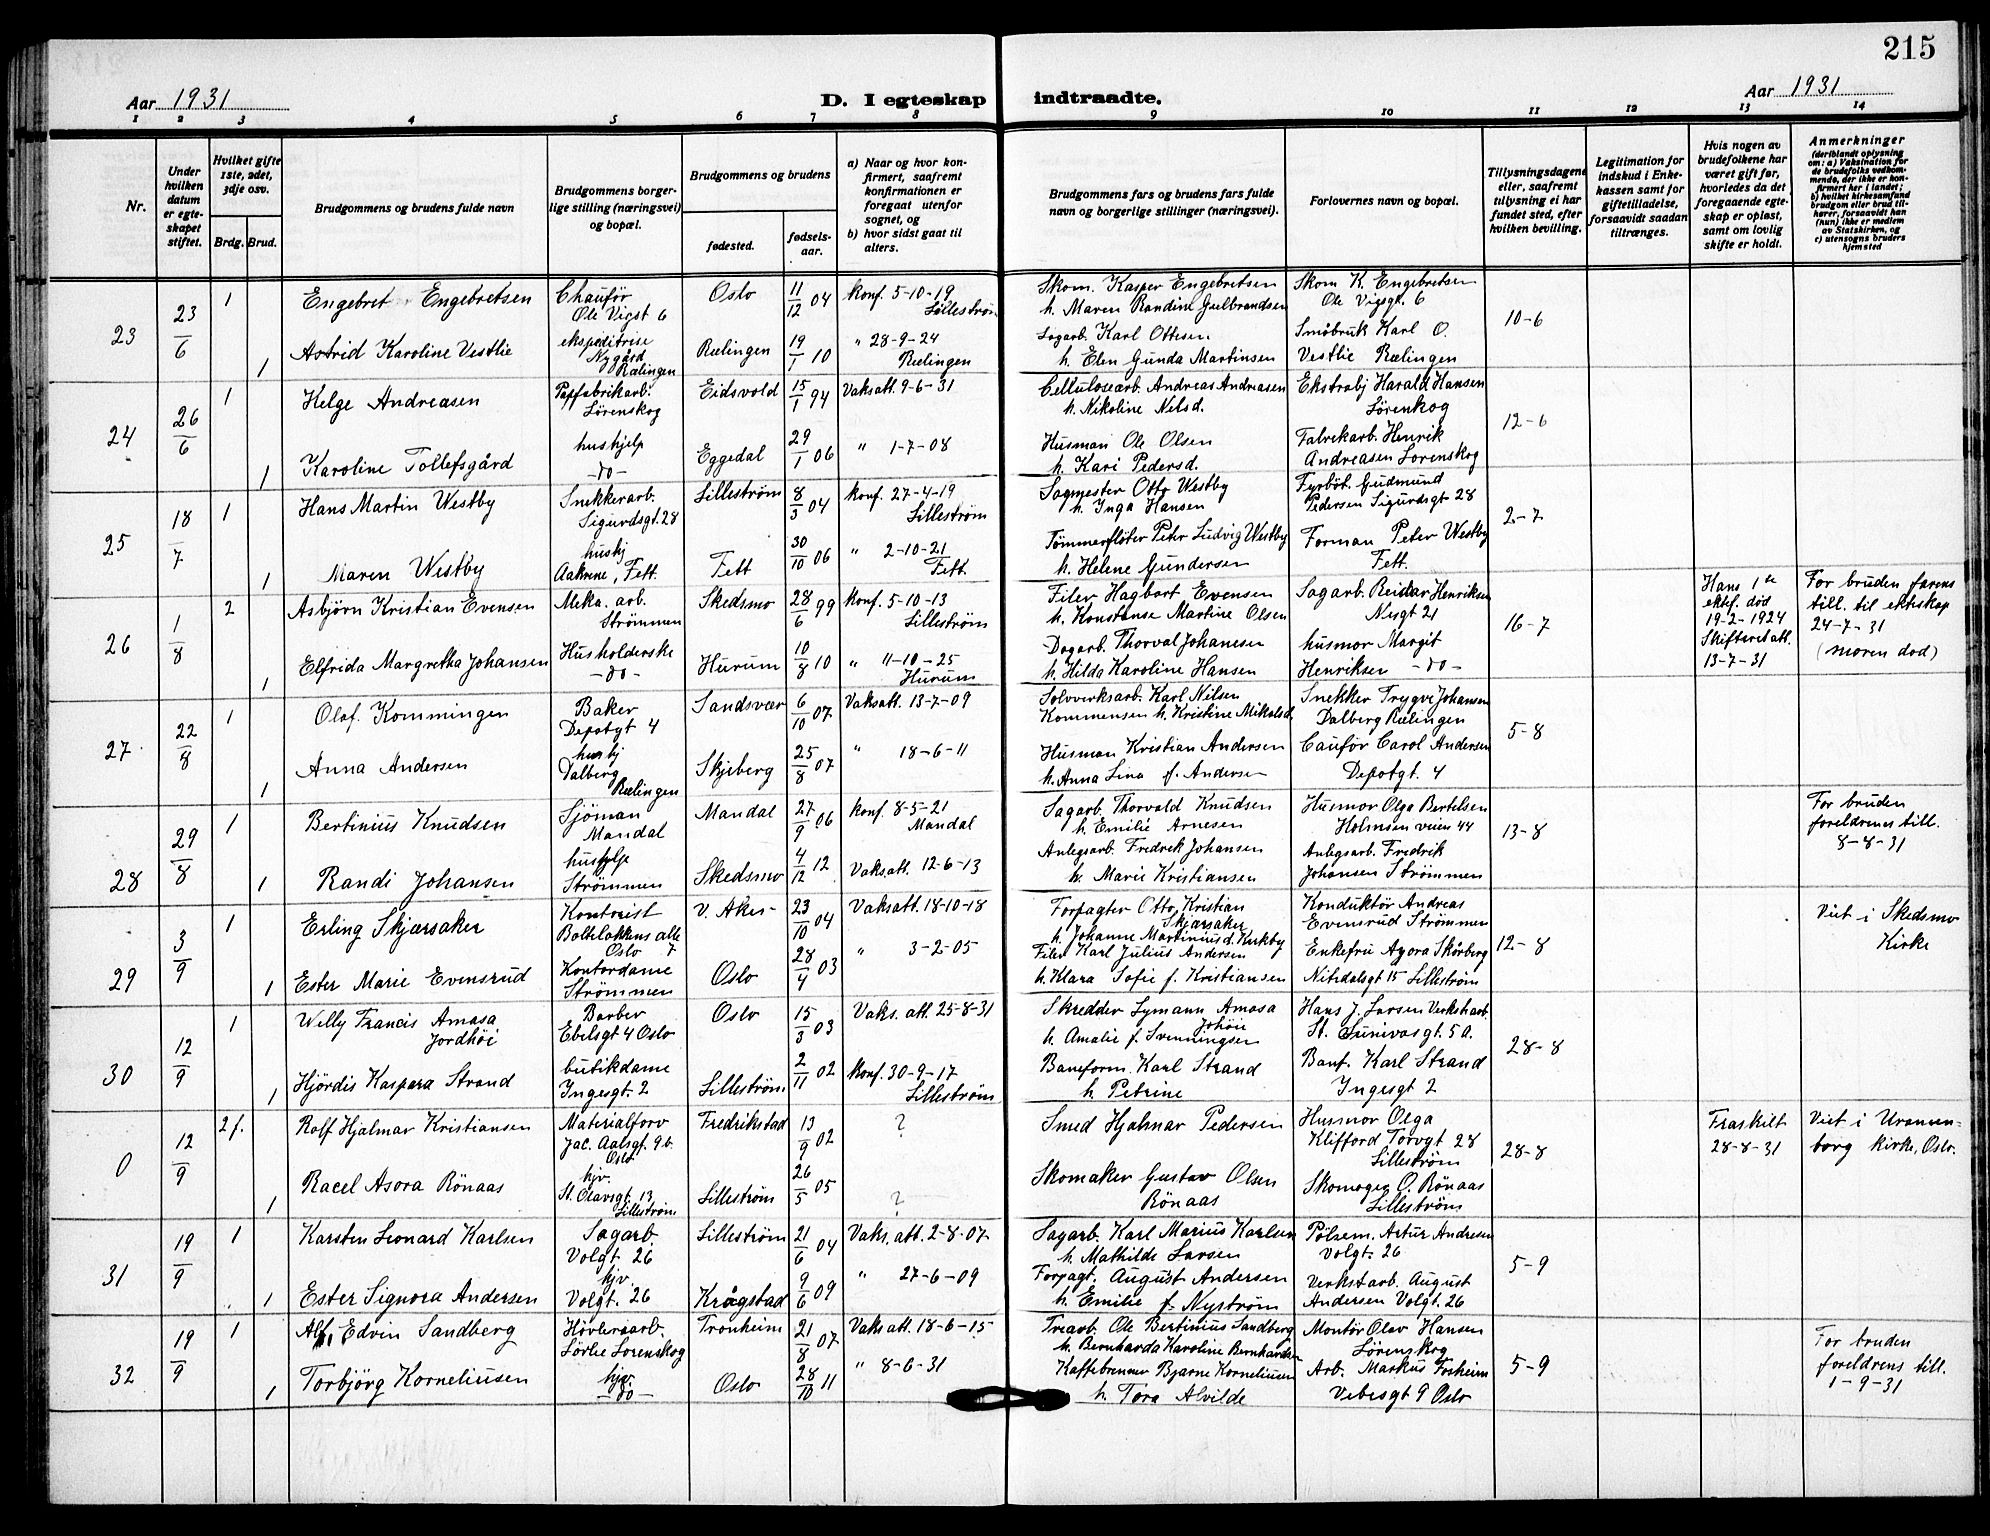 215
Aar 1931
D. I egteskap indtraadte.
Aar 1931
1 2 3 4 5 6 7 8 9 10 11 12 13 14
Nr.
Under hvilken datum er egteskapet stiftet.
Hvilket gifte 1ste, 2det, 3dje osv.
Brdg. Brud.
Brudgommens og brudens fulde navn
Brudgommens borgerlige stilling (næringsvei) og bopæl.
Brudgommens og brudens
fødested.
fødselsaar.
a) Naar og hvor konfirmert, saafremt konfirmationen er foregaat utenfor sognet, og
b) hvor sidst gaat til alters.
Brudgommens fars og brudens fars fulde navn og borgerlige stillinger (næringsvei).
Forlovernes navn og bopæl.
Tillysningsdagene eller, saafremt tillysning ei har fundet sted, efter hvilken bevilling.
Legitimation for indskud i Enkekassen samt for giftetilladelse, forsaavidt saadan tiltrænges.
Hvis nogen av brudefolkene har været gift før, hvorledes da det foregaaende egteskap er opløst, samt om lovlig skifte er holdt.
Anmerkninger
(deriblandt oplysning om: a) Vaksination for de brudefolks vedkommende, der ikke er konfirmert her i landet; b) hvilket kirkesamfund brudgom eller brud tilhører, forsaavidt han (hun) ikke er medlem av Statskirken, og c) utensogns bruders hjemsted
23
23/6
1
Engebret Engebretsen
Chauför
Ole Vigst 6
Oslo
11/12 04
Konf. 5-10-19
Lilleström
Skom. Kasper Engebretsen
h. Maren Randine Gulbrandsen
Skom K. Engebretsen
Ole Vigsgt. 6
10-6
1
Astrid Karoline Vestlie
ekspeditrise
Nygård
Rælingen
Rælingen
19/1 10
" 28-9-24
Rælingen
Sagarb. Karl Ottesen
h. Elen Gunda Martinsen
Småbruk Karl O.
Vestlie Rælingen
24
26/6
1
Helge Andreasen
Papfabrikarb.
Lörenskog
Eidsvold
15/1 94
Vaksatt. 9-6-31
Cellulosearb. Andreas Andreasen
h. Nikoline Nelsd.
Ekstrabj Harald Hansen
Lörenkog
12-6
1
Karoline Tollefsgård
hushjelp
-do-
Eggedal
29/1 06
" 1-7-08
Husman Ole Olsen
h. Kari Pedersd.
Fabrikarb. Henrik
Andreasen Lorenskog
25
18/7
1
Hans Martin Westby
Snekkerarb.
Sigurdsgt. 28
Lilleström
8/3 04
Konf. 27-4-19
Lilleström
Sagmester Otto Westby
h. Inga Hansen
Fyrböt. Gudmund
Pedersen Sigurdsgt 28
2-7
1
Maren Westby
husbj
Aakrene, Fett.
Fett
30/10 06
" 2-10-21
Fett.
Tömmerflöter Peter Ludvig Westby
h. Helene Gundersen
Forman Peter Westby
Fett.
26
1/8
2
Asbjörn Kristian Evensen
Meka. arb.
Strömmen
Skedsmo
28/6 99
Konf. 5-10-13
Lilleström
Filer Hagbart Evensen
h. Konstanse Martine Olsen
Sagarb. Reidar Henriksen
Nesgt 21
16-7
Hans 1ste
ektef. död
19-2-1924
Skifteratt.
13-7-31
For bruden farens
till. til ekteskap
24-7-31
(moren död)
1
Elfrida Margretha Johansen
Husholderske
-do-
Hurum
10/8 10
" 11-10-25
Hurum
Dagarb. Thorval Johansen
h. Hilda Karoline Hansen
husmor Margit
Henriksen -do-
27
22/8
1
Olaf. Kommingen
Baker
Depotgt 4
Sandsvær
6/10 07
Vaksatt. 13-7-09
Solvverksarb. Karl Nilsen
Kommensen h. Kristine Mikalsd.
Snekker Trygve Johansen
Dalberg Rælingen
5-8
1
Anna Andersen
husbj
Dalberg
Rælingen
Skjeberg
25/8 07
" 18-6-11
Husman Kristian Andersen
h. Anna Lina f. Andersen
Cauför Carol Andersen
Depotgt. 4
28
29/8
1
Bertinius Knudsen
Sjöman
Mandal
Mandal
27/9 06
Konf. 8-5-21
Mandal
Sagarb. Thorvald Knudsen
h. Emilie Arnesen
Husmor Olga Bertelsen
Holmsen veien 44
13-8
For bruden
foreldrenes till.
8-8-31
1
Randi Johansen
hushjlp
Strömmen
Skedsmo
4/12 12
Vaksatt. 12-6-13
Anlegsarb. Fredrek Johansen
h. Marie Kristiansen
Anlegsarb. Fredrik
Johansen Strömmen
29
3/9
1
Erling Skjærsaker
Kontorist
Bolteløkkens alle
Oslo 7
V. Aker
23/10 04
Vaksatt. 18-10-18
Forpagter Otto Kristian
Skjærsaker
h. Johanne Martinius d. Kirkby
Konduktör Andreas
Evensrud Strömmen
12-8
Viet i Skedsmo
Kirke
1
Ester Marie Evensrud
Kontordame
Strömmen
Oslo
28/4 03
" 3-2-05
Filer Karl Julius Andersen
h. Klara Sofie f. Kristiansen
Enkefru Agora Skårberg
Nitedalsgt 15 Lilleström
30
12/9
1
Willy Francis Amasa
Jordhöi
Barber
Ebelsgt 4 Oslo
Oslo
15/3 03
Vaks. att. 25-8-31
Skredder Lymann Amasa
Johöie
h. Amalie f. Svenningsen
Hans J. Larsen Verkstarb.
St. Sunivasgt. 5 a.
28-8
1
Hjördis Kaspara Strand
butikdame
Ingesgt. 2
Lilleström
2/11 02
Konf. 30-9-17
Lilleström
Baneform. Karl Strand
h. Petrine
Banf. Karl Strand
Ingesgt 2
0
12/9
2 f.
Rolf Hjalmar Kristiansen
Materialforv
Jac. Aalsgt. 9.b.
Oslo
Fredrikstad
13/9 02
?
Smed Hjalmar Pedersen
Husmor Olga
Klifford Torvgt 28
Lilleström
28-8
Fraskilt
28-8-31
Viet i Uranienborg kirke, Oslo.
1
Racel Asora Rönaas
hjv.
St. Olavsgt. 13
Lilleström
Lilleström
26/5 05
?
Skomaker Gustav Olsen
Rönaas
Skomager O. Rönaas
Lilleström
31
19/9
1
Karsten Leonard Karlsen
Sagarb.
Volgt. 26
Lilleström
21/6 04
Vaks. att. 2-8-07
Sagarb. Karl Marius Karlsen
h. Mathilde Larsen
Pölsem. Artur Andresen
Volgt. 26
5-9
1
Ester Signora Andersen
hjv.
Volgt. 26
Krågstad
9/6 09
" 27-6-09
Forpagt. August Andersen
h. Emilie f. Nyström
Verkstarb. August
Andersen Volgt. 26
32
19/9
1
Alf Edvin Sandberg
Hövleriarb.
Lörlie Lorenskog
Tronheim
21/8 07
Vaks att. 18-6-15
Trearb. Ole Bertinius Sandberg
h. Bernharda Karoline Bernhardsen
Montör Olav Hansen
Lörenskog
5-9
For bruden
foreldrens till.
1-9-31
1
Torbjörg Korneliusen
hjv.
-do-
Oslo
28/10 11
" 8-6-31
Kaffebrenner Bjarne Korneliusen
h. Tora Alvilde
Arb. Markus Forheim
Vebesgt 9 Oslo